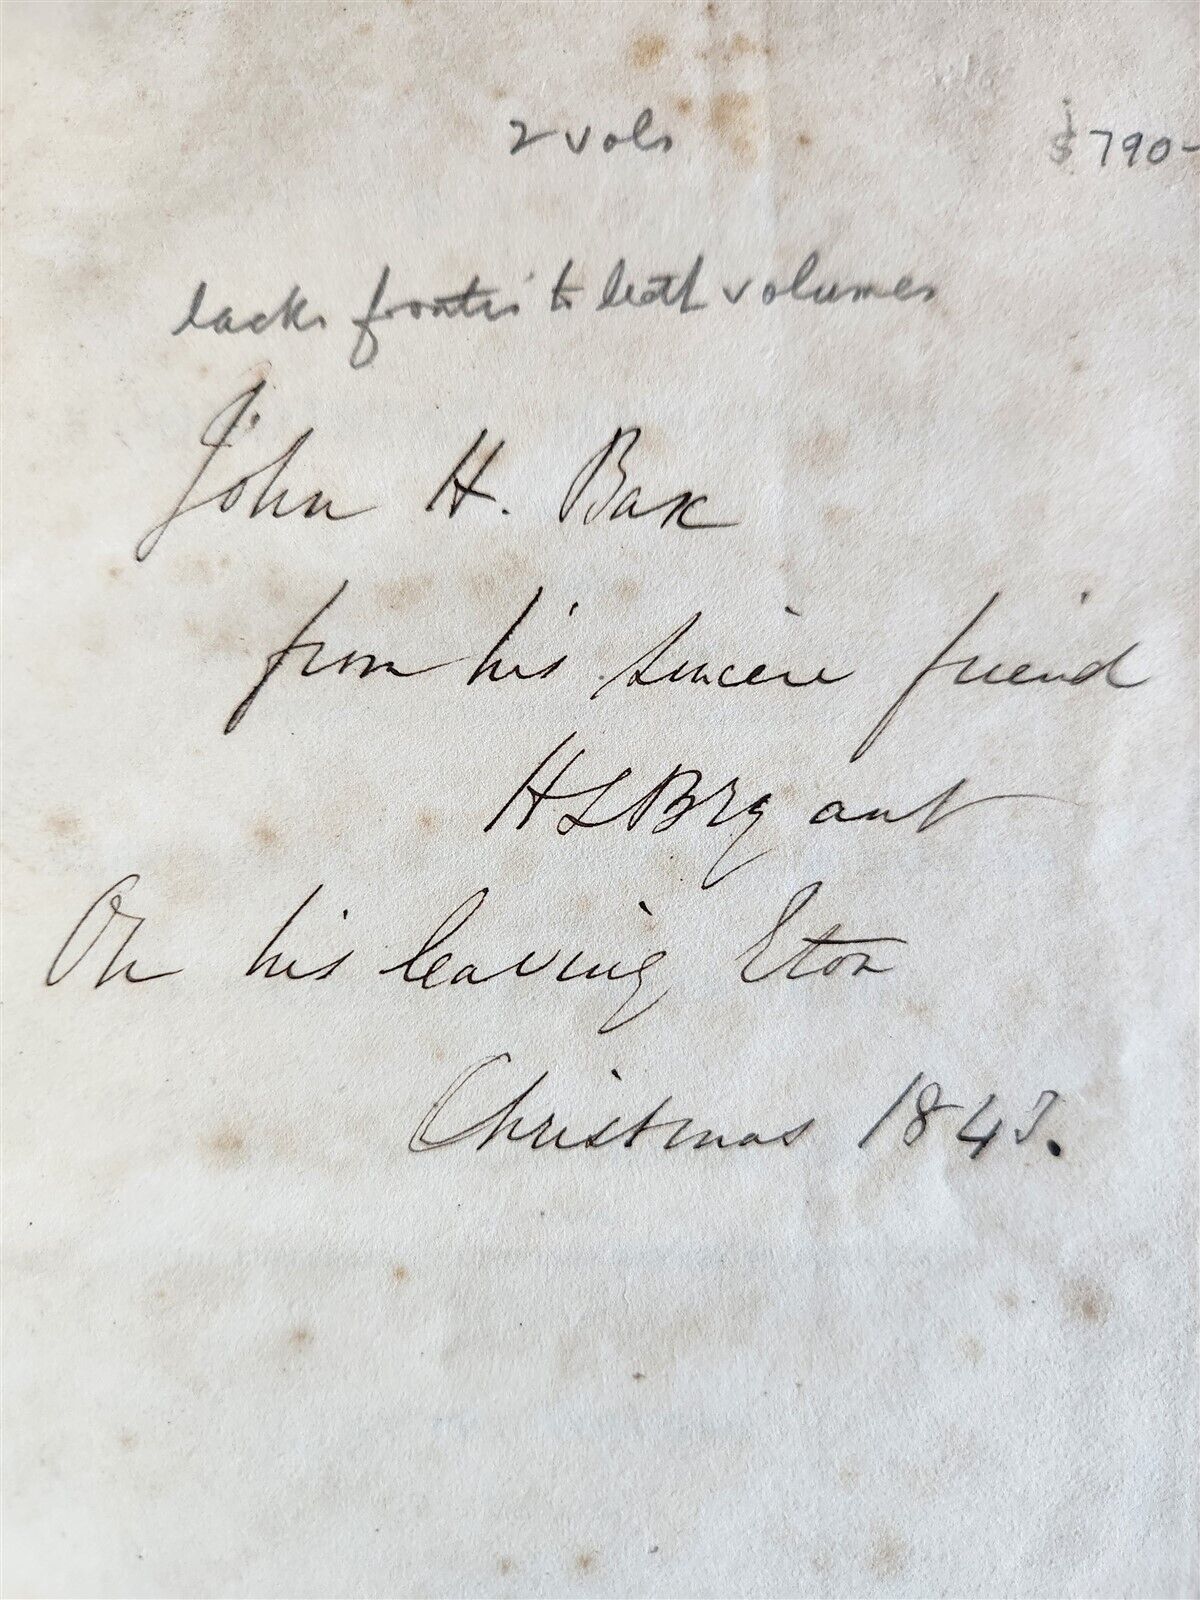 2 vols
$790-
lacks frontis to both volumes
John H. Bax
from his sincere friend
H L Bryant
On his leaving Eton
Christmas 1843.